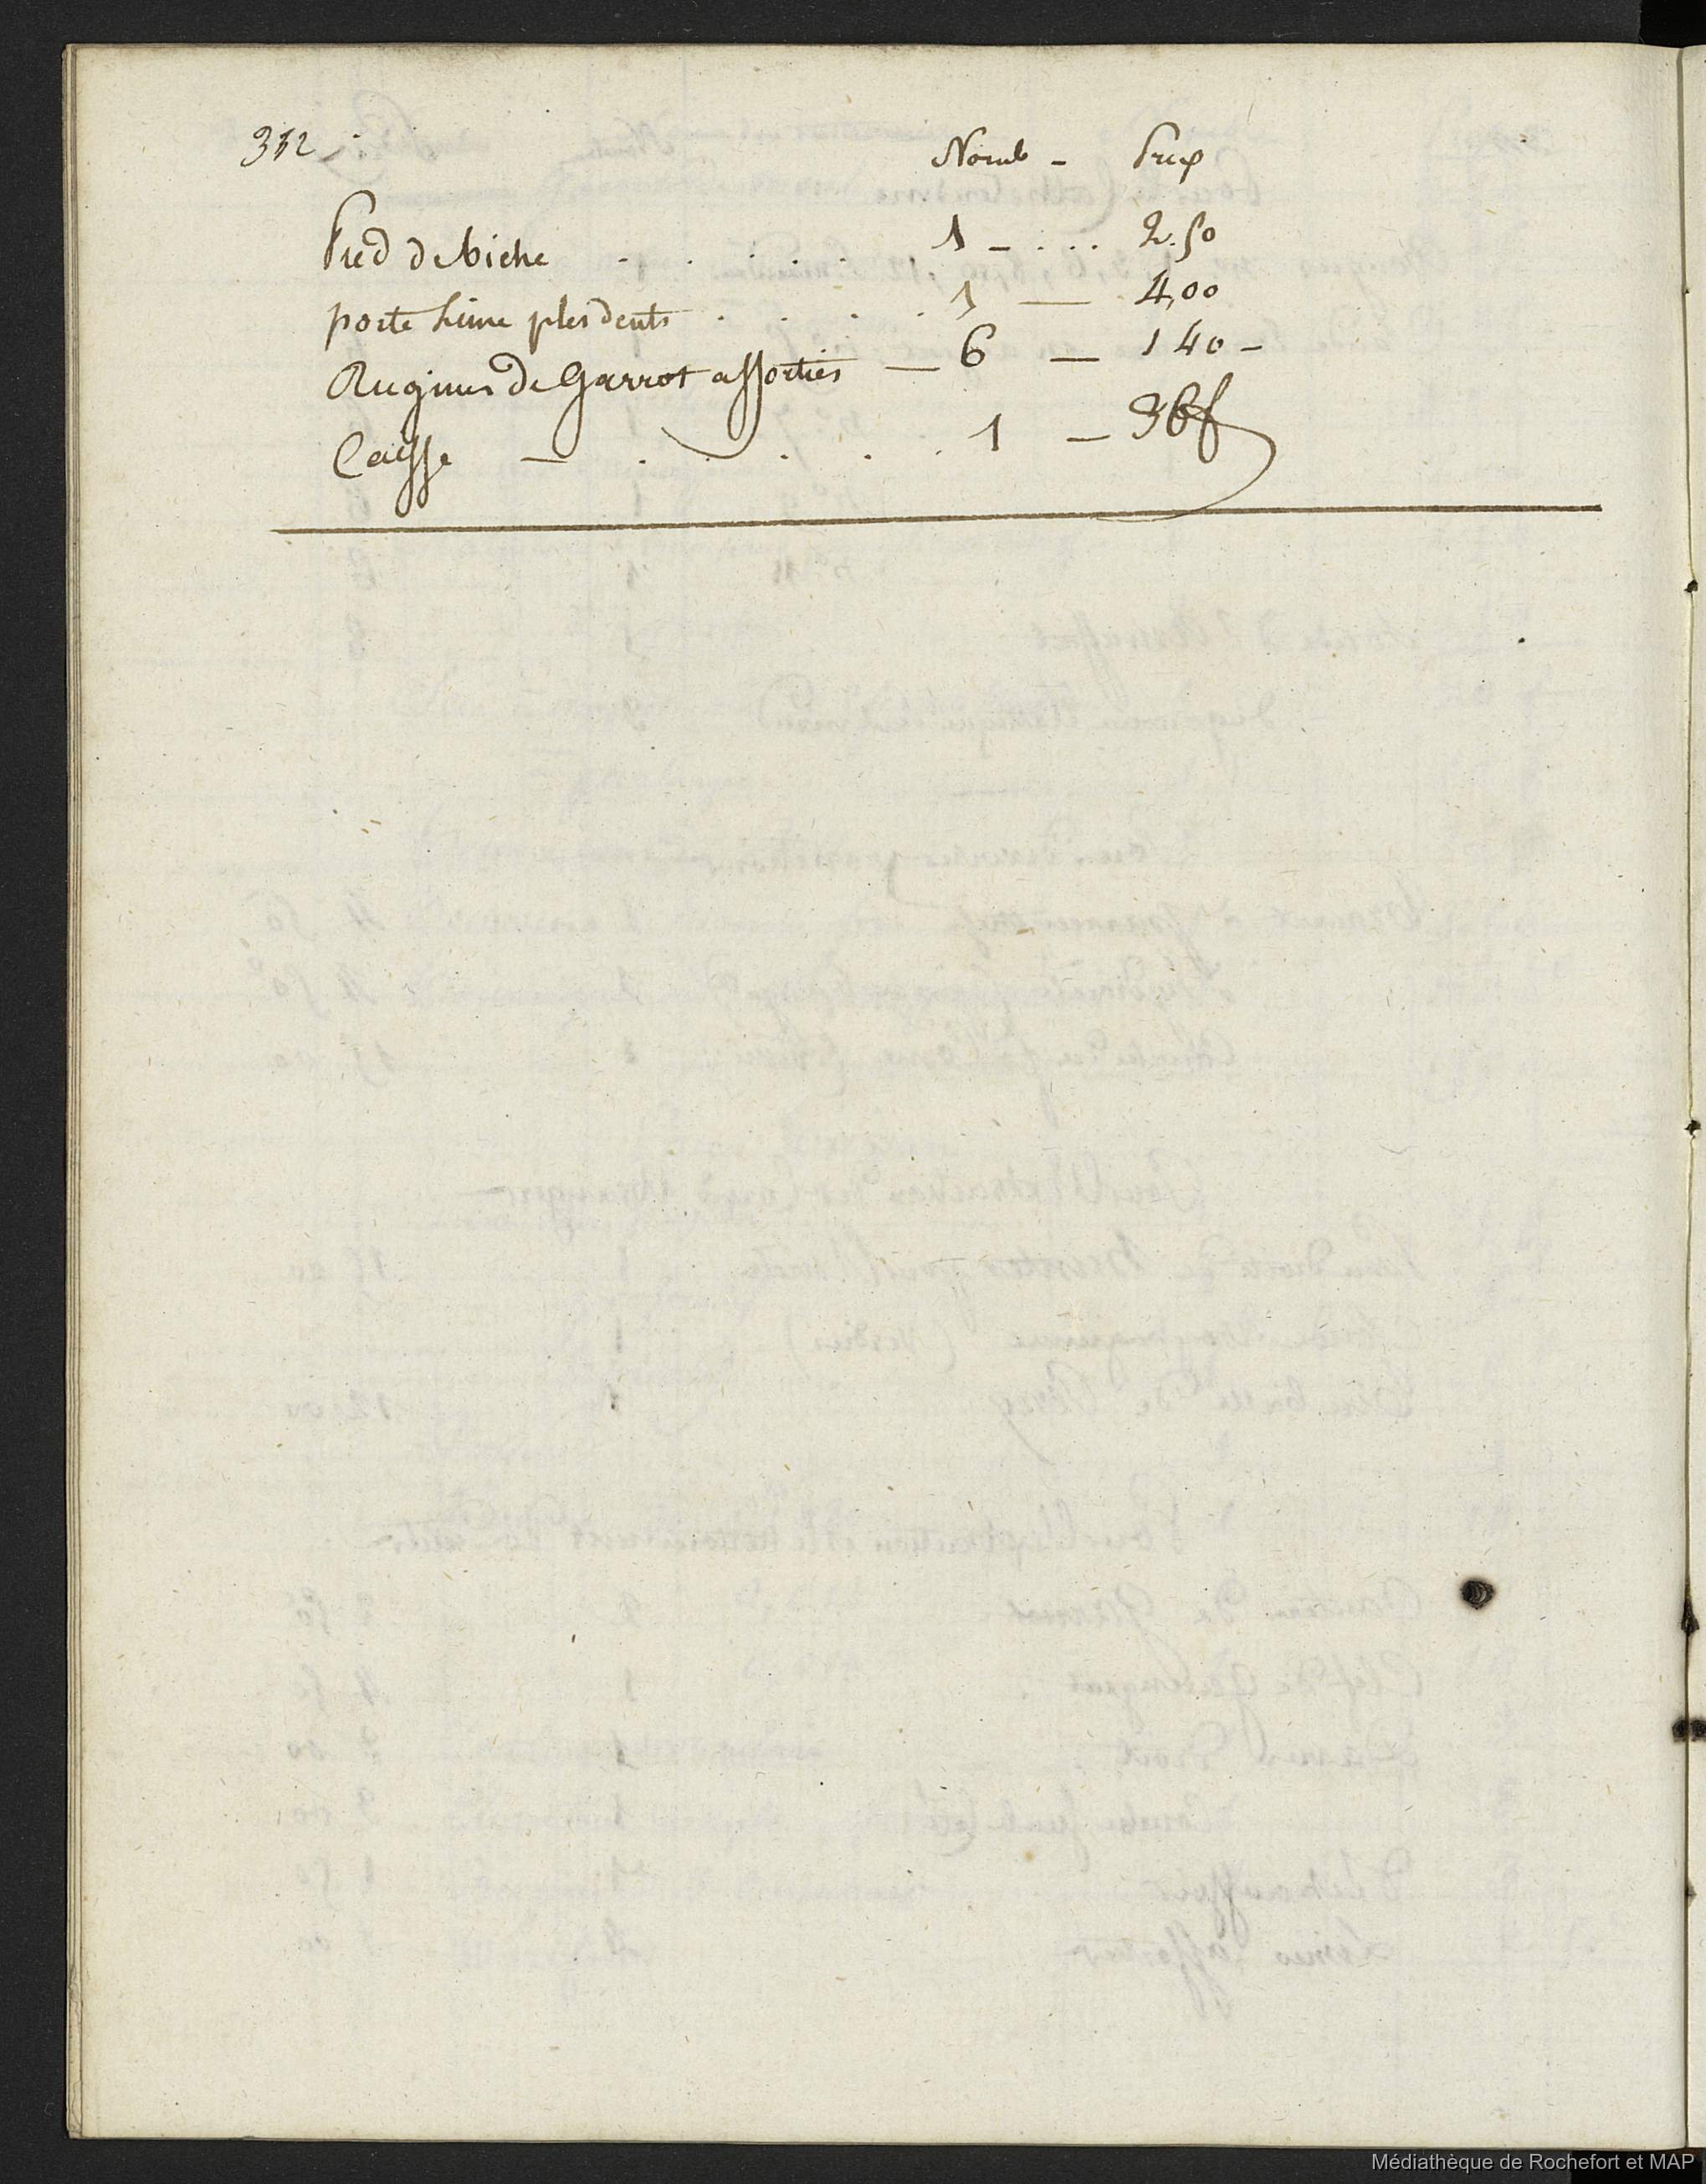 312
Nomb - Prix
Pied de biche . . . . . 1 - . . . 2.50
porte Lime p les dents . . . . 1 — 4,00
Rugines de Garrot assorties — 6 — 1 40 -
Caisse — . . . . . 1 — 36f
Médiathèque de Rochefort et MAP